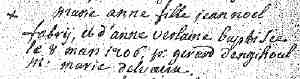 + marie anne fille jean noel
fabry, et d'anne verlaine baptisee
le 8 mars 1706 pr gerard d'engihoul
mr marie